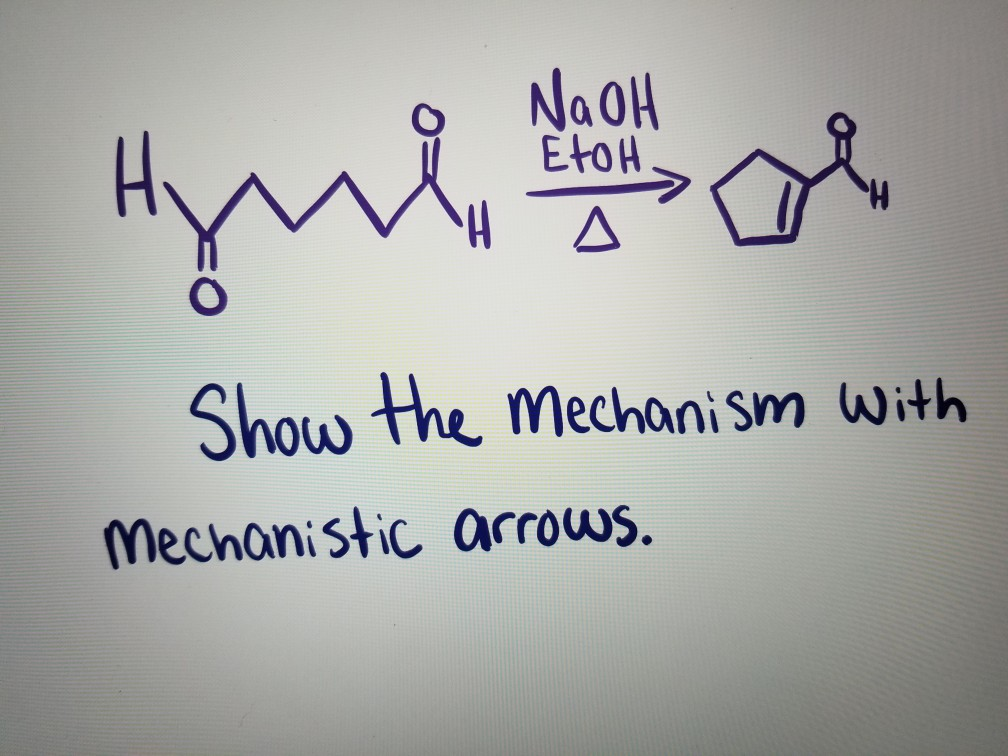 H O O H NaOH O H
EtOH
Δ
Show the Mechanism with
Mechanistic arrows.